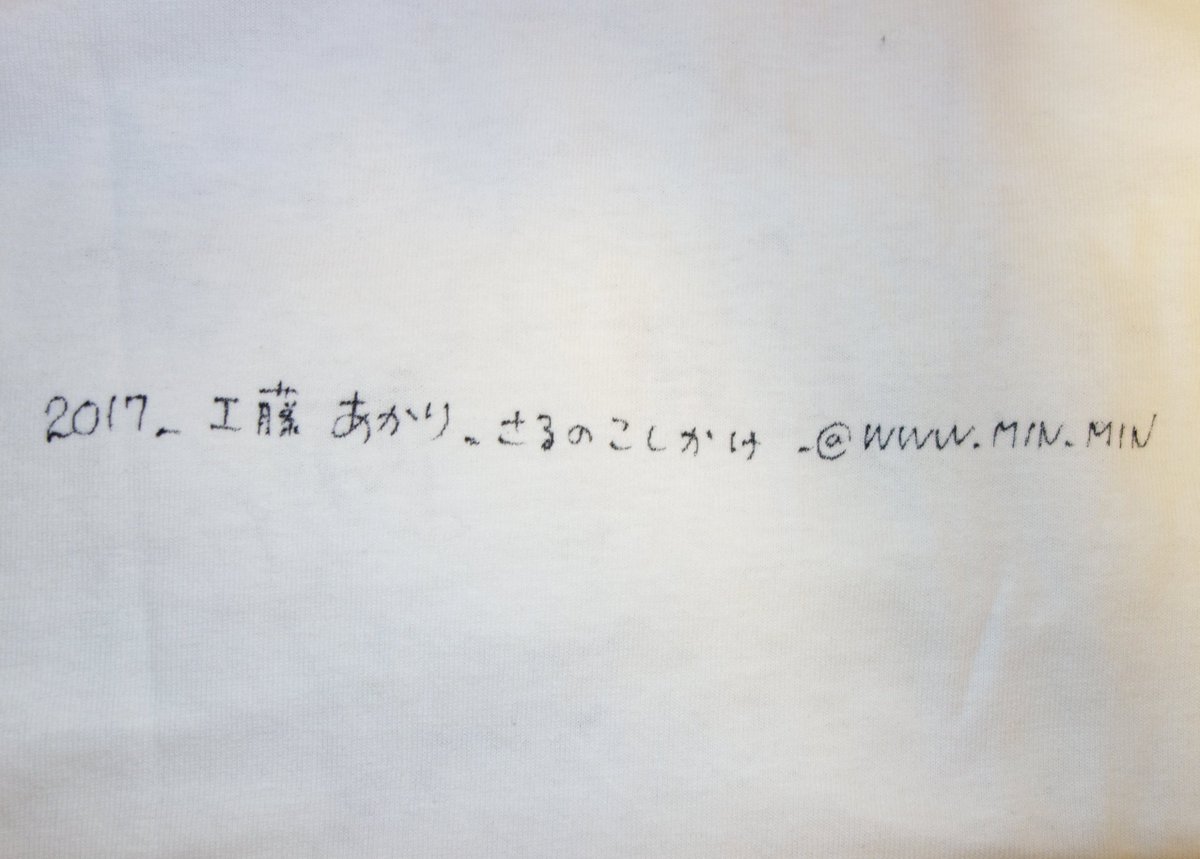 2017_ 工藤 あかり_さるのこしかけ _@WWW.MIN.MIN